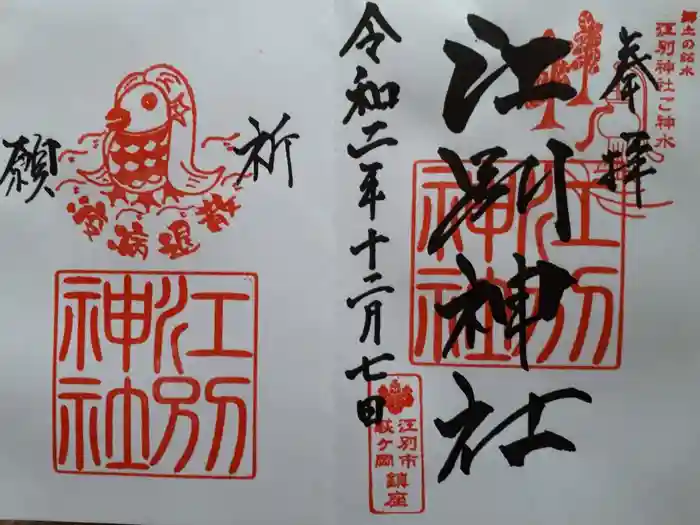 郷土の銘水
江別神社ご神水
奉拝
江別神社
江別
神社
令和二年十二月七日
江別市
萩ヶ岡
鎮座
祈
願
疫病退散
江別
神社